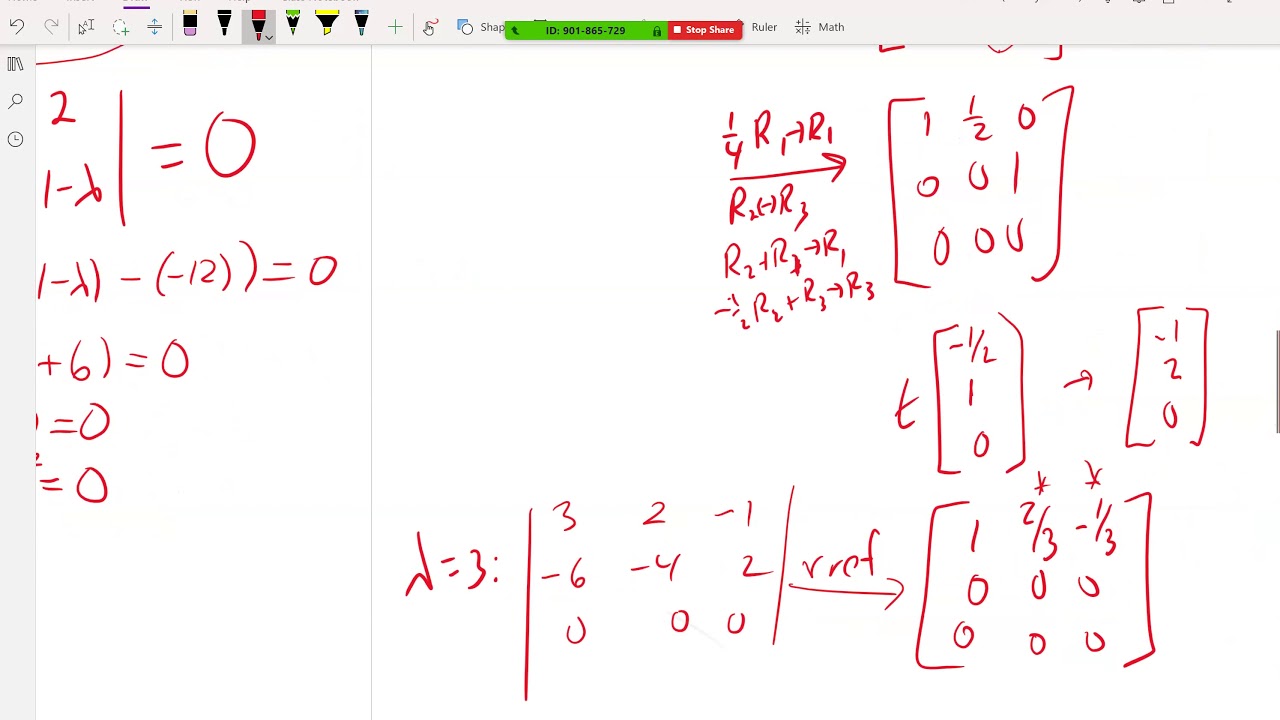 Shap
ID: 901-865-729
Stop Share
Ruler
Math
2
1-λ
= 0
1-λ) - (-12)) = 0
+6) = 0
=0
= 0
1/4 R1→R1
R2↔R3
R2+R1→R1
-1/2 R2 + R3→R3
1 1/2 0
0 0 1
0 0 0
t [-1/2 1 0] → [-1 2 0]
* *
λ=3:
3 2 -1
-6 -4 2
0 0 0
rref →
1 2/3 -1/3
0 0 0
0 0 0